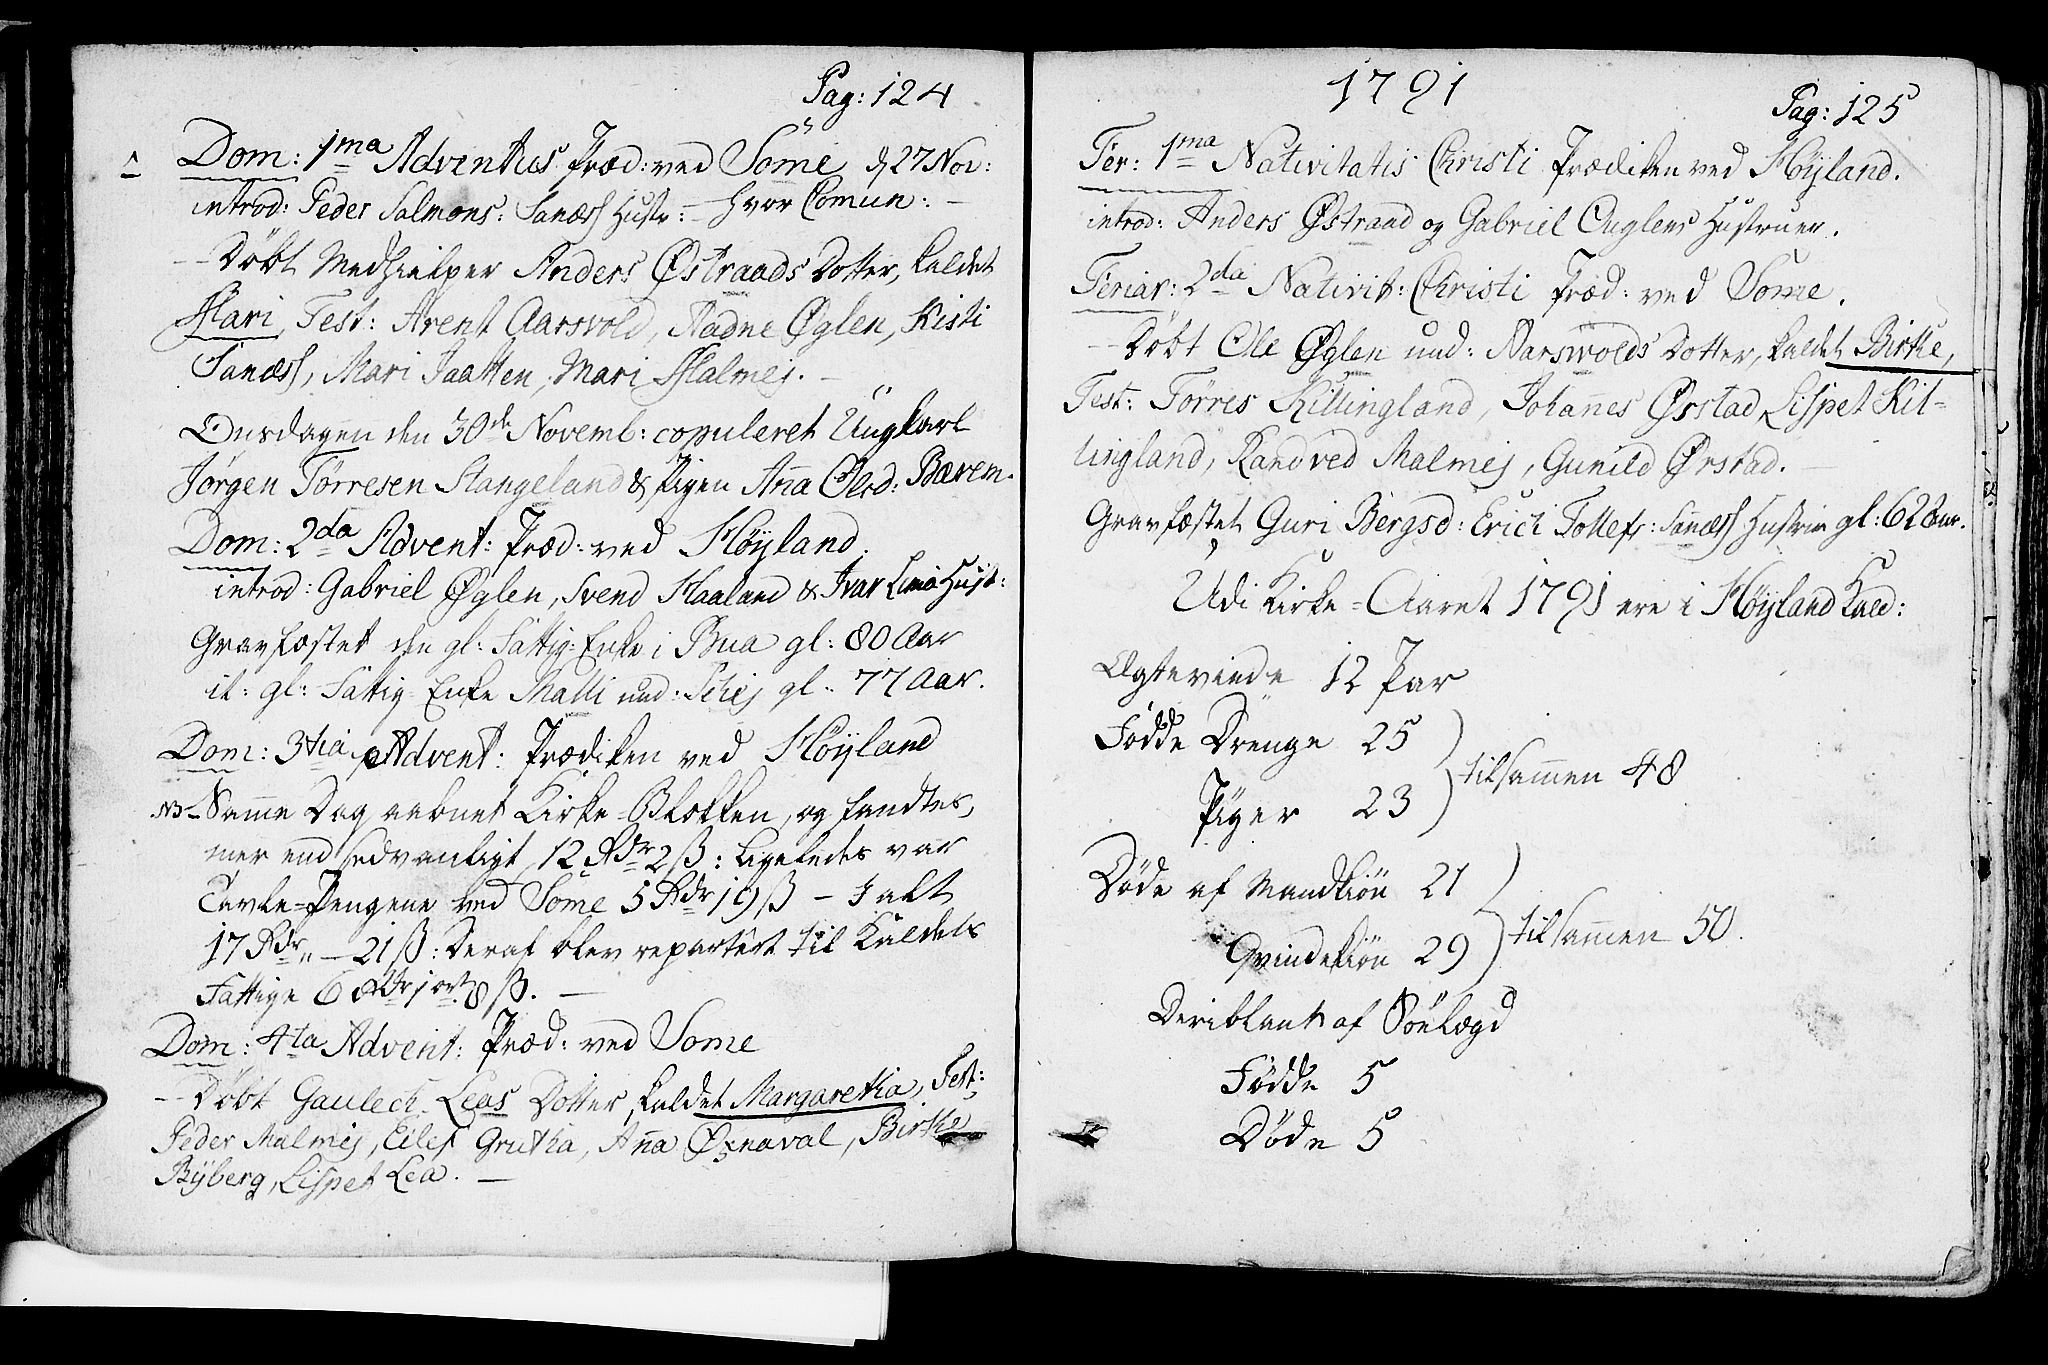 Pag: 124
Dom: 1ma Adventus Præd: ved Some d 27 Nov:
introd: Peder Salmons: Sanæss Hustr: – hvor Comun: –
– Döbt Medhielper Anders Østraads Dotter, kaldet
Hari, Test: Arent Aarsvold, Aadne Øglen, Kisti
Sanæss, Mari Jaatten, Mari Malmej. –
Onsdagen den 30de Novemb: copuleret Ungkarl
Jørgen Törresen Stangeland & Pigen Aña Olsd: Bærem.
Dom: 2da Advent: Præd: ved Höyland.
introd: Gabriel Øglen, Svend Haaland & Ivar Lima Hust:
Gravfæstet den gl: Fattig-Enke i Bua gl: 80 Aar
it: gl: Fattig-Enke Malli und: Schej gl: 77 Aar.
Dom: 3tia Advent: Prædiken ved Höyland
NB – Samme Dag aabnet Kirke-Blokken, og fandtes,
mer end sædvanligt, 12 Rdr 2 ß: ligeledes var
Tavle-Pengene ved Some 5 Rdr 19 ß – I alt
17 Rdr „ – 21 ß: Deraf blev repartért til Kaldets
Fattige 6 Rdr 1 ort 8 ß. –
Dom: 4ta Advent: Præd: ved Some
– Döbt Gaulech Leas Dotter, kaldet Margaretha, Test:
Peder Malmej, Eilef Grutha, Aña Øxnaval, Birthe
Bÿberg, Lispet Lea. –
1791
Pag: 125
Fer: 1ma Nativitatis Christi Prædiken ved Höyland.
introd: Anders Østraad og Gabriel Ouglens Hustruer.
Feriar: 2da Nativit: Christi Præd: ved Some.
– Döbt Ole Øglen und: Narswolds Dotter, kaldet Birthe,
Test: Törres Killingland, Johañes Ørstad, Lispet Kil-
lingland, Randved Malmej, Gunild Ørstad. –
Gravfæstet Guri Bergsd: Erich Tollefs: Sanæss Hustrue gl: 62 Aar.
Udi Kirke-Aaret 1791 ere i Höyland Kald:
Ægteviede 12 Par
Födde Drenge 25
tilsam̄en 48
Piger 23
Döde af Mandkiön 21
tilsam̄en 50.
Qvindekiön 29
Deriblant af Söelægd
Födde 5
Döde 5